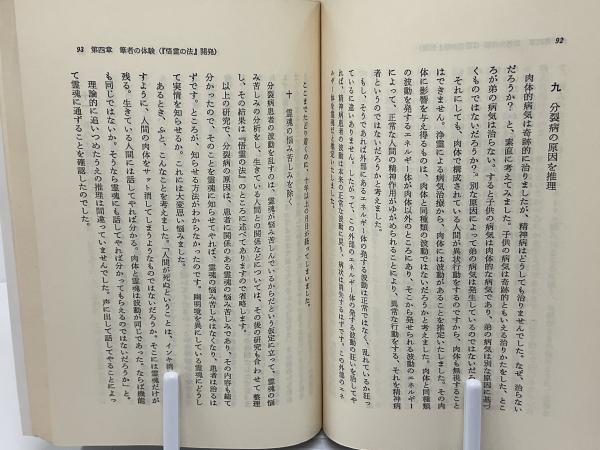 92
九　分裂病の原因を推理
肉体的病気は奇跡的に治りましたが、精神病はどうしても治りませんでした。なぜ、治らない
だろうか？　と、素直に考えてみました。子供の病気は奇跡的ともいえる治りかたをした、とこ
ろが弟の病気は治らない。すると子供の病気は肉体的な病気であり、弟の病気は別な原因に基づ
くものではないだろうか？　別な原因によって弟の病気は発生しているのではないだろ
それにしても、肉体で構成されている人間が異状行動をするのですから、肉体も無視すること
はできません。浄霊による病気治療から、肉体には波動があることを推定いたしました。その肉
体に影響を与え得るものは、肉体と同種類の波動ではないだろうかと考えました。肉体と同種類
の波動を発するエネルギー体が肉体以外のところにあり、そこから発せられる波動のエネルギー
によって、正常な人間の精神作用がゆがめられることにより、異常な行動をする、それを精神病
者というのではないだろうかと考えました。
もし、そうであれば外部にあるエネルギー体の発する波動は正常ではなく、乱れているか狂っ
ているに違いありません。したがって、この外部のエネルギー体の発する波動の狂いを治してや
れば、精神病患者の波動は本来の正常な波動に戻り、病状は消失するはずです。この外部のエネ
ルギー体を霊魂だと推定いたしました。
93　第四章　筆者の体験（『悟霊の法』開発）
ここまでたどり着くのに、十年以上の月日が経ってしまいました。
十　霊魂の悩み苦しみを除く
分裂病患者の波動を乱すのは、霊魂が悩み苦しんでいるからだという仮定に立って、霊魂の悩
み苦しみの分析をし、生きている人間との関係などについては、その後の研究も合わせて整理
し、その結果は『悟霊の法』のところに述べてありますので省略します。
以上の研究で、分裂病の原因は、患者に関係のある霊魂の悩み苦しみであり、その内容も総て
分かったので、そのことを霊魂に知らせてやれば、霊魂の悩み苦しみはなくなり、患者は治るは
ずです。ところが、知らせる方法がわからなかったのです。幽明境を異にしている霊魂にどうし
て実情を知らせるか。これには大変思い悩みました。
あるとき、ふと、こんなことを考えました。「人間が死ぬということは、インキ消
すように、人間の肉体をサット消してしまうようなものではないだろうか。そこには霊魂だけが
残る。生きている人間には話してやれば分かってもらえるのではないだろうか。肉体と霊魂は波動が同じであった、ならば機能
も同じではないか。そうなら霊魂にも話してやれば分かってもらえるのではないだろうか」と。
理論的に追いつめたうえの推理は間違っていませんでした。声に出して話してやることによっ
て霊魂に通ずることを確認したのでした。